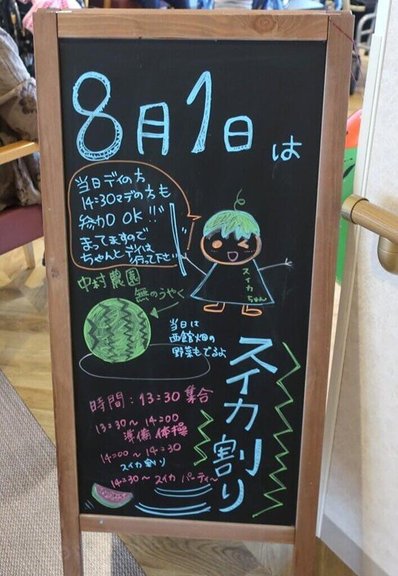 8月1日は
当日デイの方
14:30マデの方も
参加O OK!!!
まってますので
ちゃんとデイは
行って下さい
スイカ
ちゃん
中村農園
無のうやく
当日は
西館畑の
野菜もでるよ
スイカ割り
時間:13:30集合
13:30~14:00
準備体操
14:00~14:30
スイカ割り
14:30~スイカパーティ~